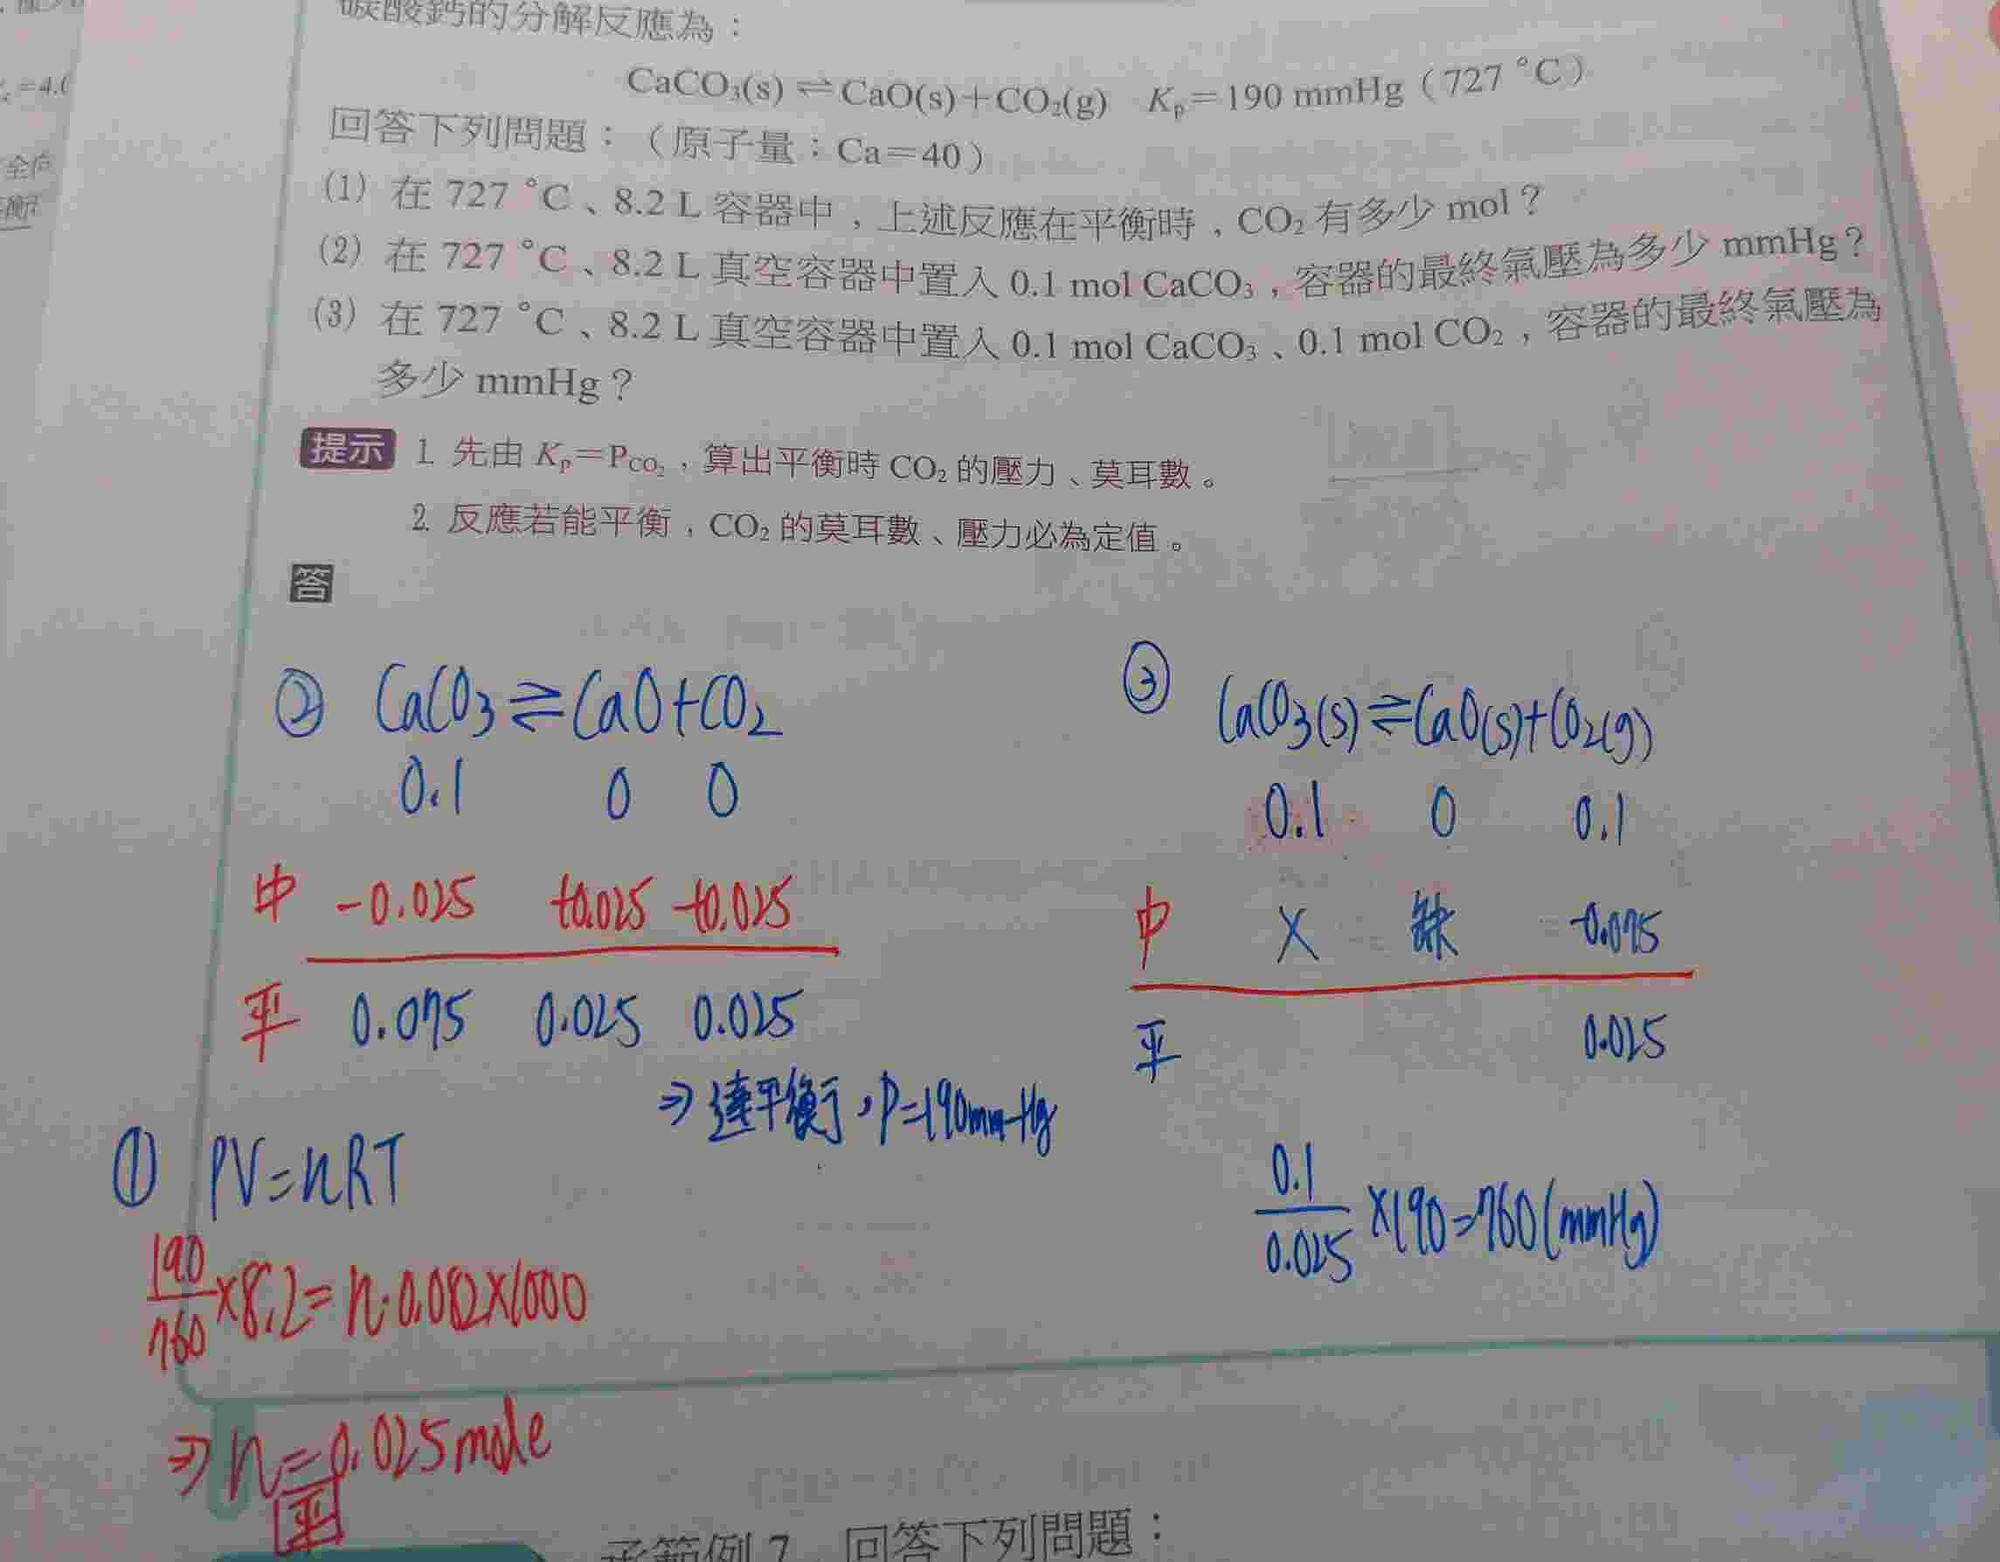 碳酸鈣的分解反應為：
CaCO₃(s) ⇌ CaO(s)+CO₂(g) Kₚ＝190 mmHg（727 °C）
回答下列問題：（原子量：Ca＝40）
(1) 在 727 °C、8.2 L 容器中，上述反應在平衡時，CO₂ 有多少 mol？
(2) 在 727 °C、8.2 L 真空容器中置入 0.1 mol CaCO₃，容器的最終氣壓為多少 mmHg？
(3) 在 727 °C、8.2 L 真空容器中置入 0.1 mol CaCO₃、0.1 mol CO₂，容器的最終氣壓為
多少 mmHg？
提示 1. 先由 Kₚ＝P_CO₂，算出平衡時 CO₂ 的壓力、莫耳數。
2. 反應若能平衡，CO₂ 的莫耳數、壓力必為定值。
答
② CaCO₃ ⇌ CaO+CO₂
0.1 0 0
中 -0.025 +0.025 +0.025
平 0.075 0.025 0.025
⇒ 達平衡，P=190mmHg
③ CaCO₃(s) ⇌ CaO(s)+CO₂(g)
0.1 0 0.1
中 X 缺 -0.075
平 0.025
0.1/0.025 ×190=760(mmHg)
① PV=nRT
190/760 ×8.2=n·0.082×1000
⇒ n平=0.025mole
承範例 7，回答下列問題：
=4.0
衡